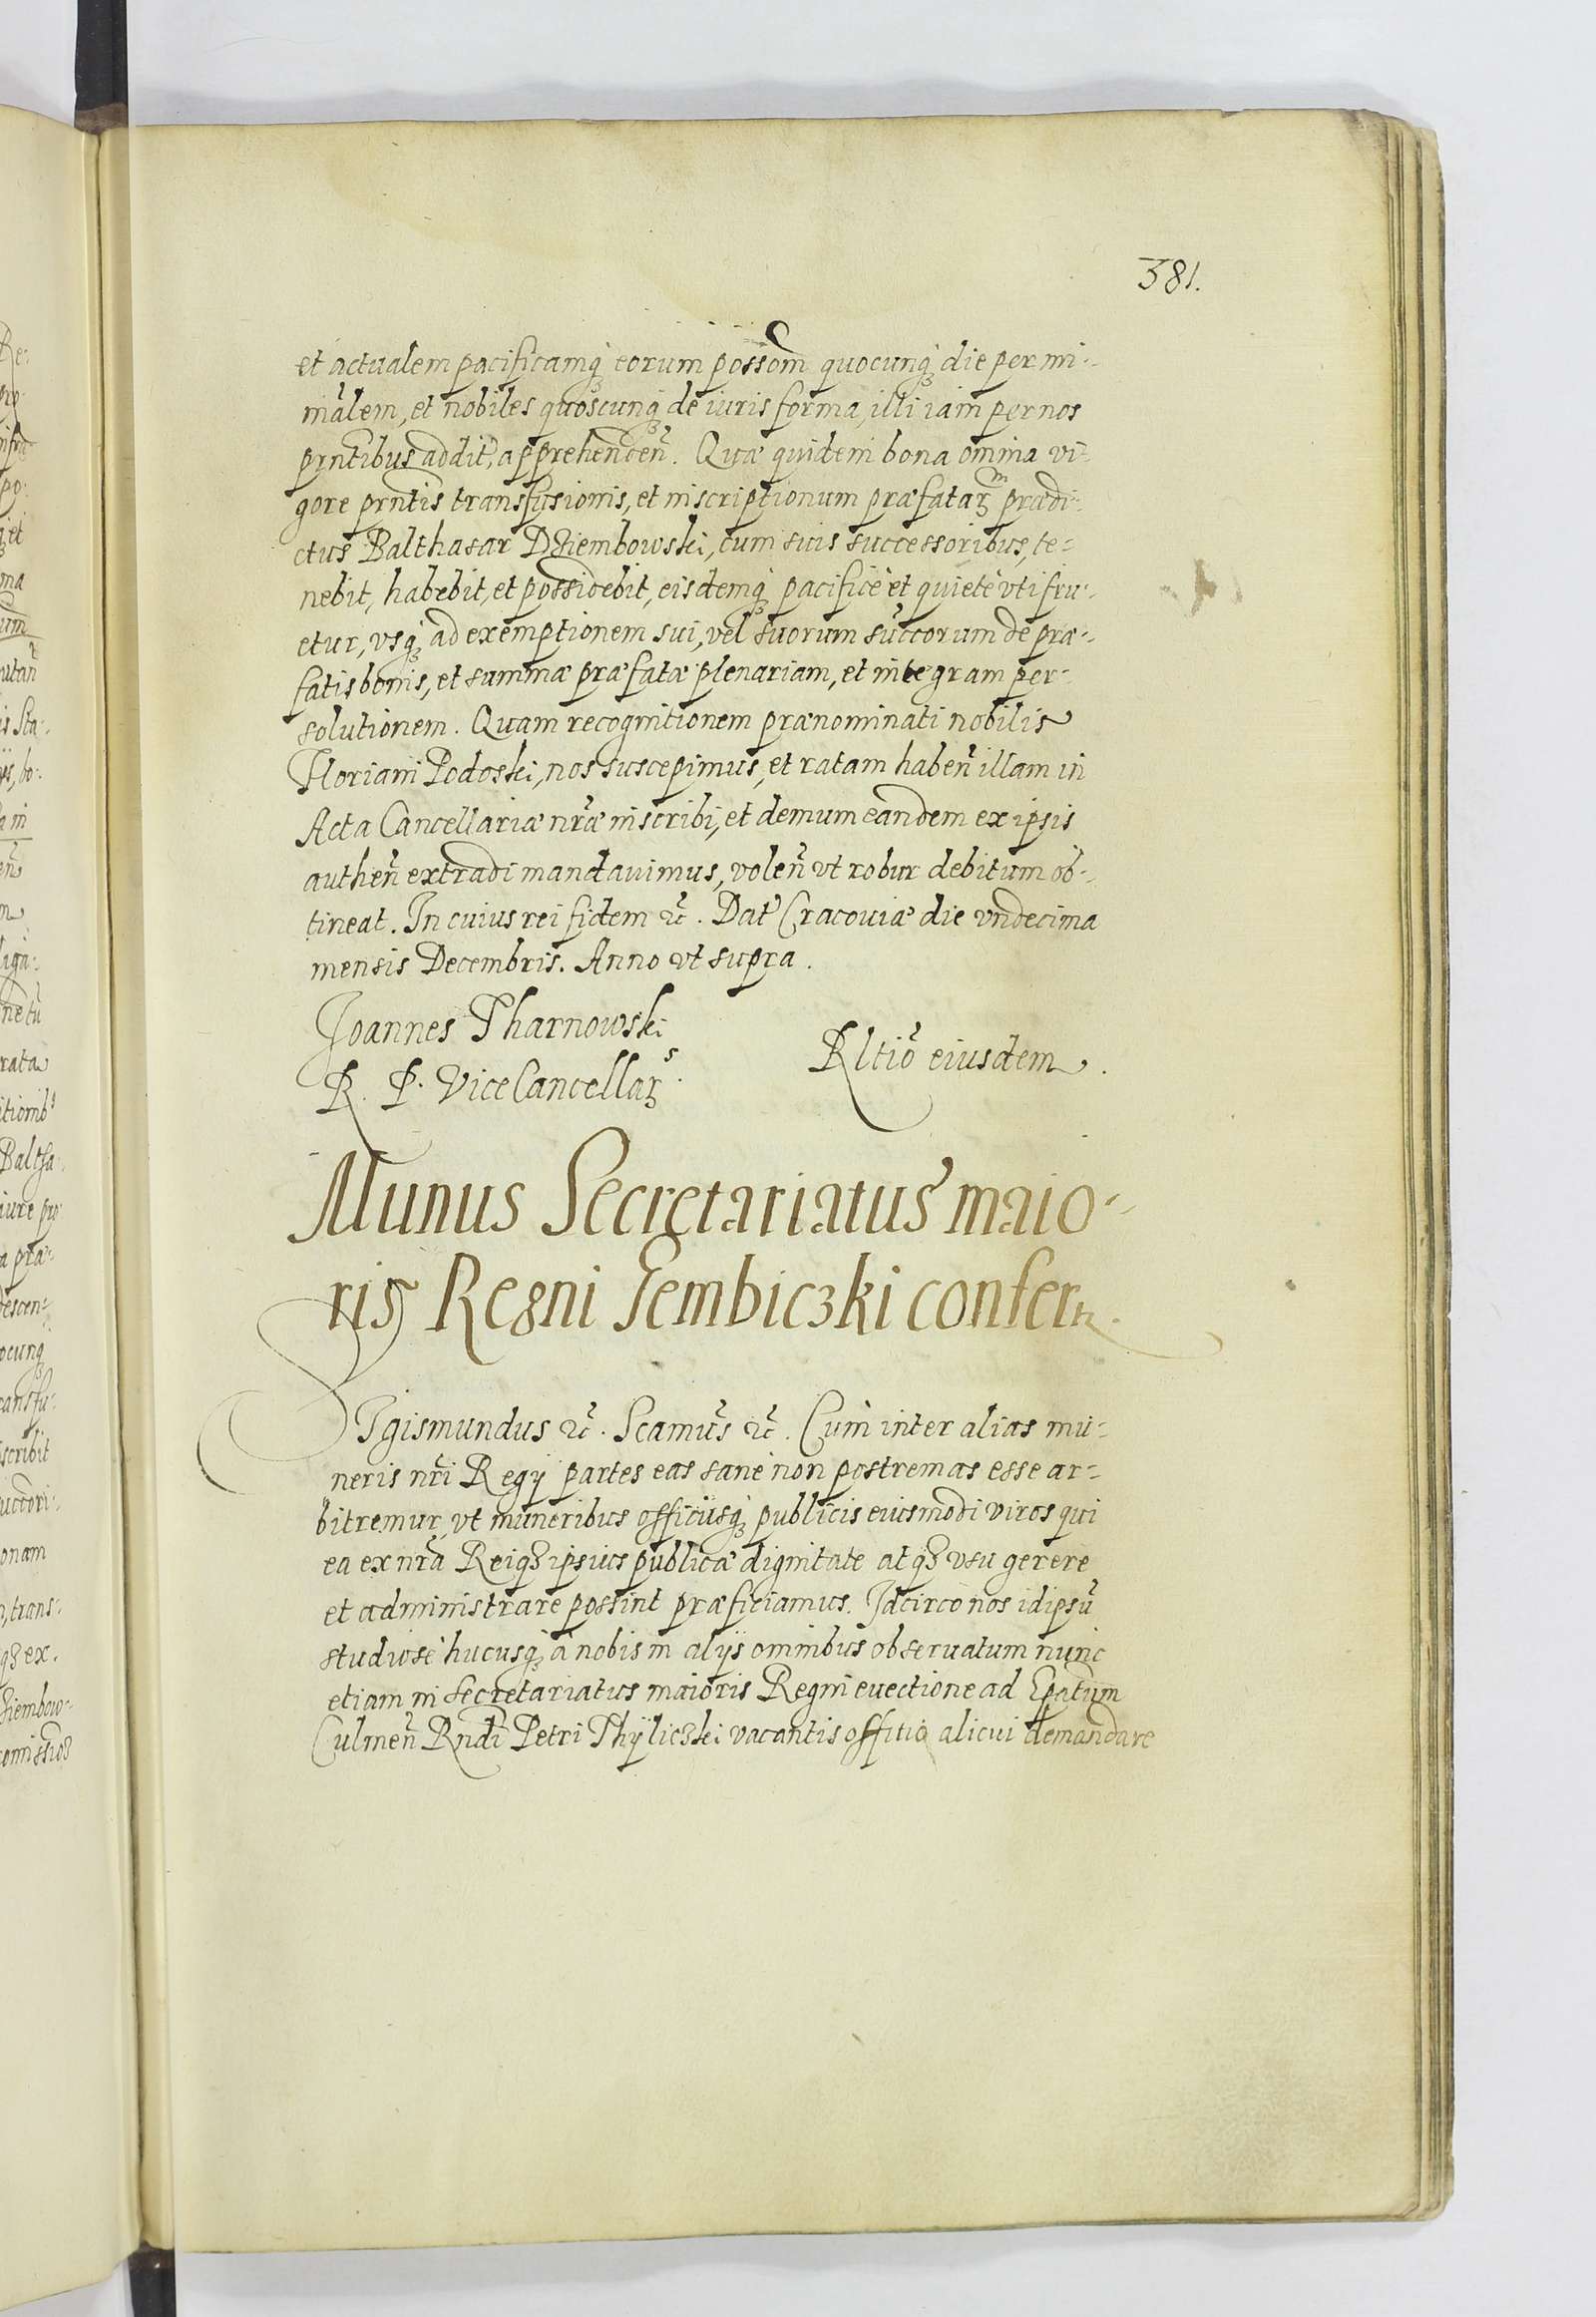 381.
et actualem pacificamq́ꝫ eorum possom̃ quocunq́ꝫ die per mi-
nãlem, et nobiles quoscunq́ꝫ de iuris forma, illi iam per nos
prñtibus addit̃, apprehendeñ. Quæ quidem bona omnia vi-
gore prñtis transfusionis, et inscriptionum præfatarꝫͫ prædi-
ctus Balthasar Dziembowski, cum suis successoribus, te-
nebit, habebit, et possidebit, eisdemq́ꝫ pacificè et quietè vti fru-
etur, vsq́ꝫ ad exemptionem sui, vel suorum succõrum de præ-
fatis bonis, et summæ præfatæ plenariam, et integram per-
solutionem. Quam recognitionem prænominati nobilis
Floriani Podoski, nos suscepimus, et ratam habeñ illam in
Acta Cancellariæ nr̃æ inscribi, et demum eandem ex ipsis
autheñ extradi mandauimus, voleñ vt robur debitum ob-
tineat. In cuius rei fidem ꝛc̃. Dat̃ Cracouiæ die vndecima
mensis Decembris. Anno vt supra.
Joannes Tharnowski
R. P. Vice Cancellarꝫˢ.
Rltiõ eiusdem.
Munus Secretariatus maio-
ris Regni Gembiczki confertꝛ.
SIgismundus ꝛc̃. Scamus̃ ꝛc̃. Cum inter alias mu-
neris nr̃i Regij partes eas sanè non postremas esse ar-
bitremur, vt muneribus officiisq́ꝫ publicis eiusmodi viros qui
ea ex nr̃a Reiqꝫ ipsius publicæ dignitate atqꝫ vsu gerere
et administrare possint præficiamus. Idcirco nos idipsũ
studiosè hucusq́ꝫ à nobis in alijs omnibus obseruatum nunc
etiam in secretariatus maioris Regni euectione ad Epãtum
Culmeñ Rñdi Petri Thÿliczki vacantis offitio alicui demandare